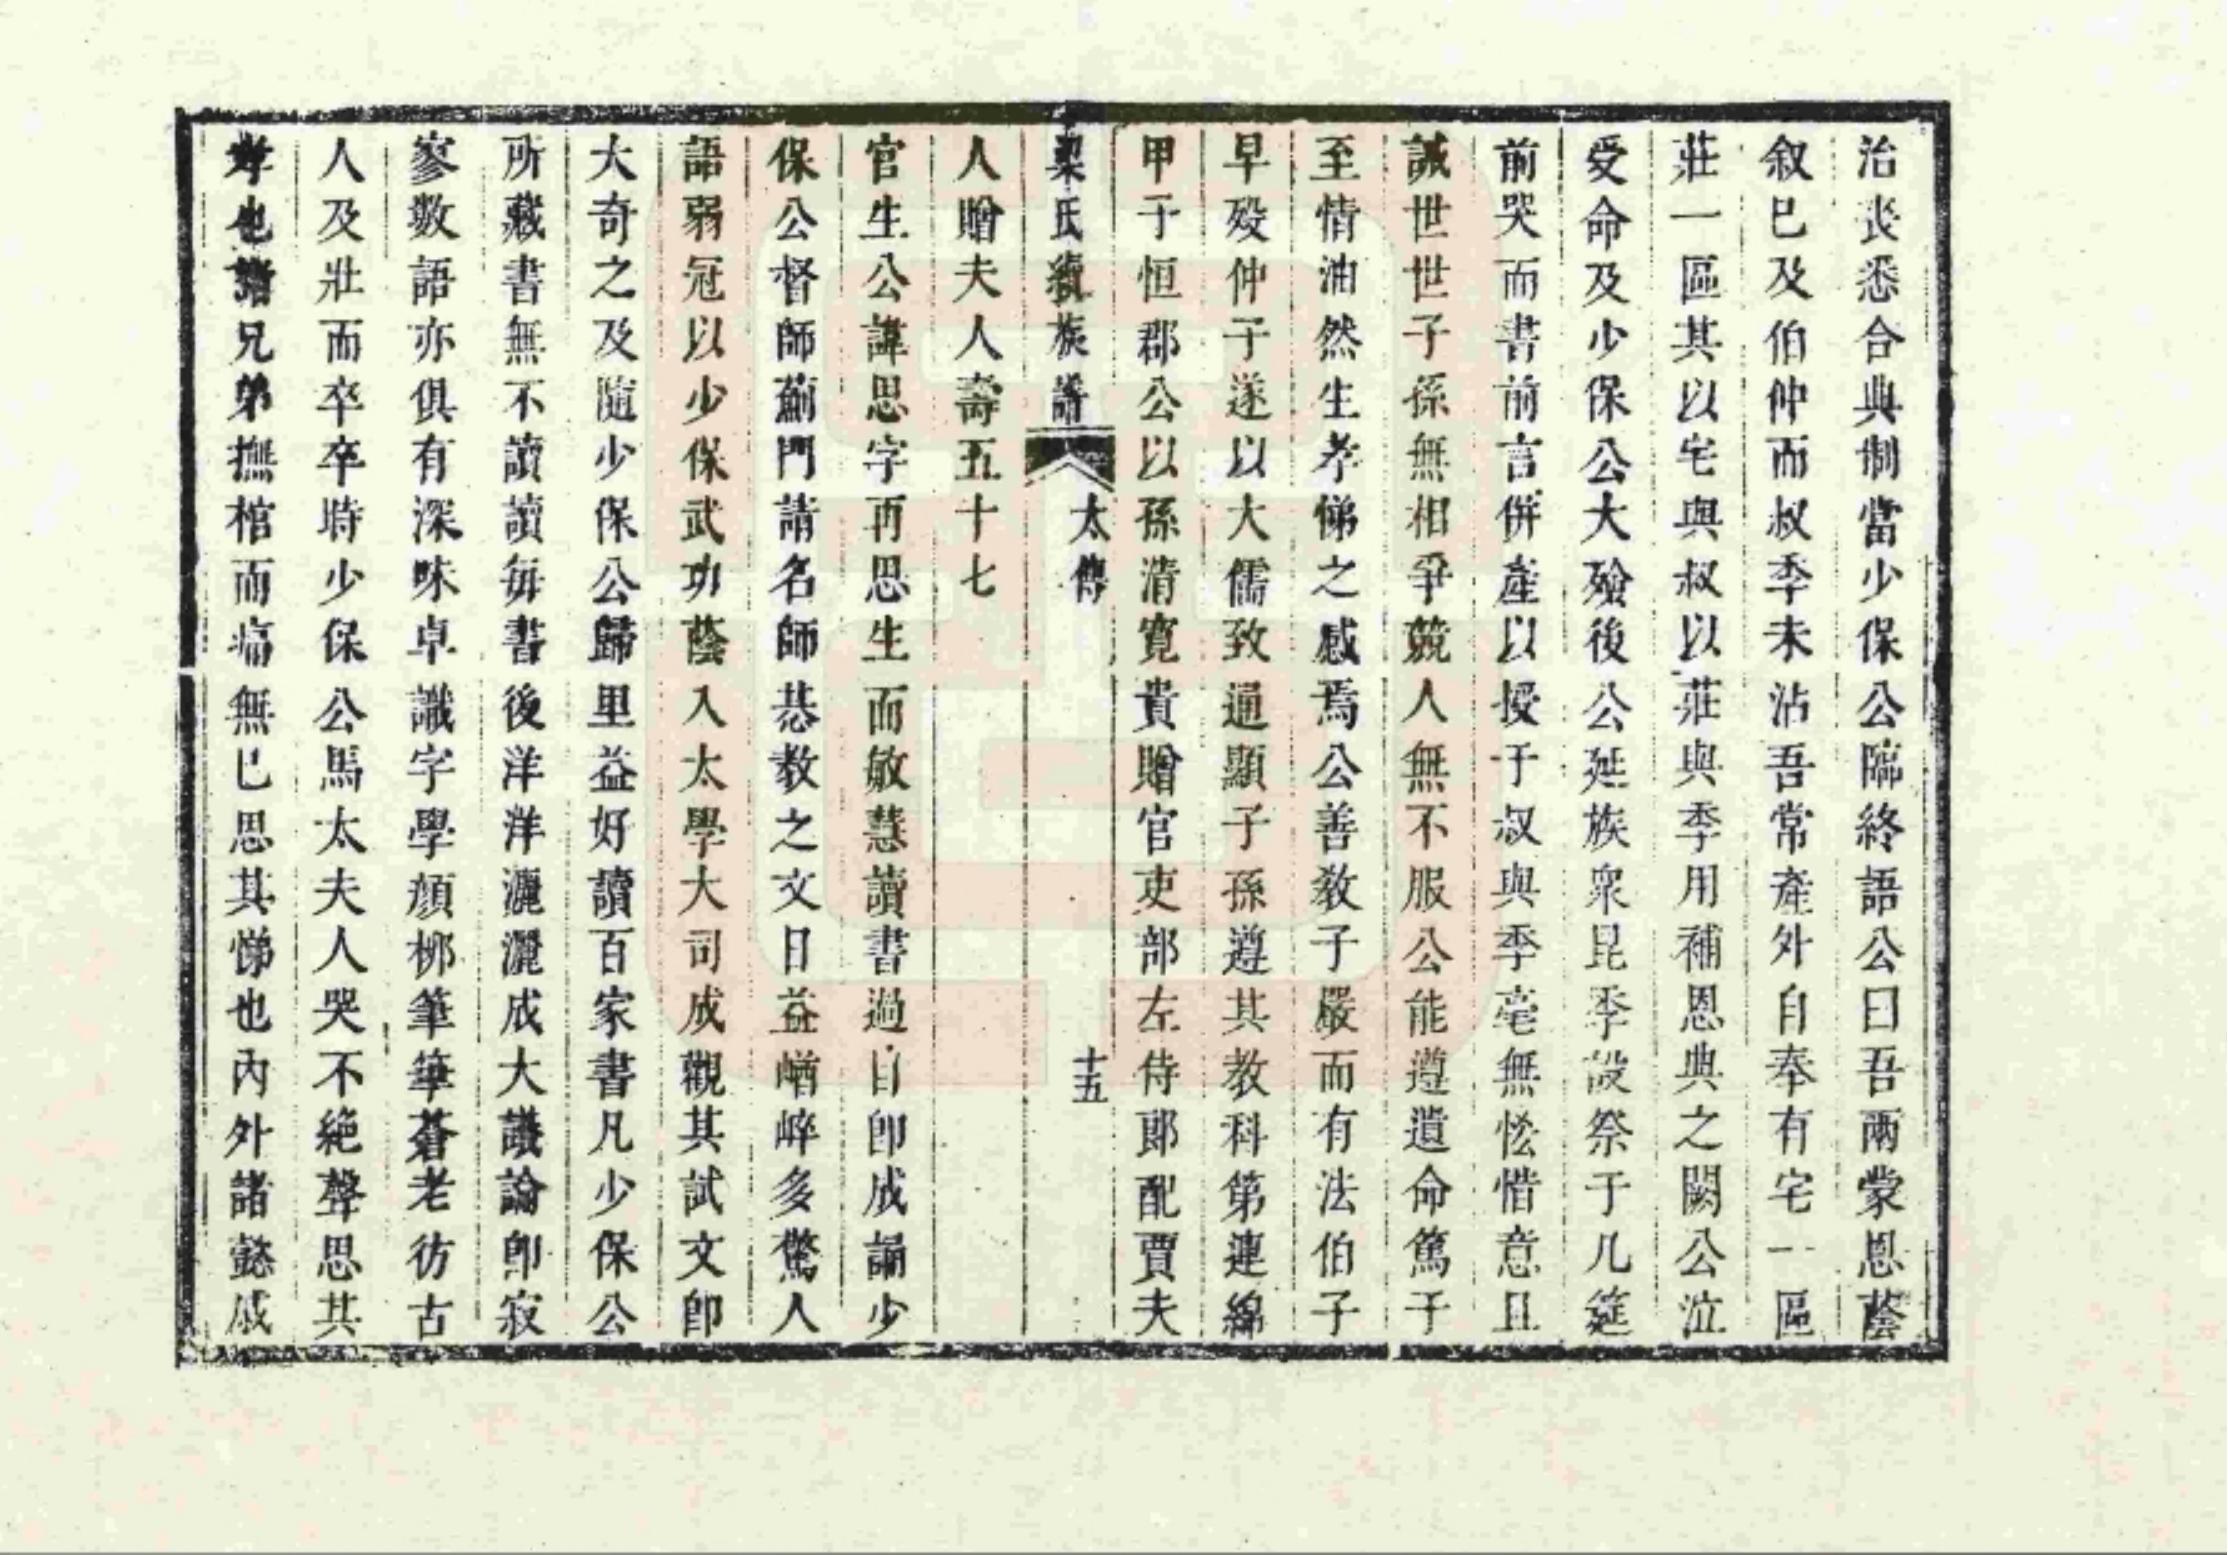 治喪悉合典制當少保公臨終語公曰吾兩蒙恩蔭
叙已及伯仲而叔季未沾吾常產外自奉有宅一區
莊一區其以宅與叔以莊與季用補恩典之闕公泣
受命及少保公大殮後公延族衆昆季設祭于几筵
前哭而書前言併產以授于叔與季毫無恡惜意且
誡世世子孫無相爭競人無不服公能遵遺命篤于
至情油然生孝悌之感焉公善教子嚴而有法伯子
早歿仲子遂以大儒致通顯子孫遵其教科第連綿
甲于恒郡公以孫清寬貴贈官吏部左侍郎配賈夫
梁氏續族譜 太傳 十五
人贈夫人壽五十七
官生公諱思字再思生而敏慧讀書過目即成誦少
保公督師薊門請名師恭教之文日益嶒崪多驚人
語弱冠以少保武功蔭入太學大司成觀其試文即
大奇之及随少保公歸里益好讀百家書凡少保公
所藏書無不讀讀每書後洋洋灑灑成大議論即寂
寥數語亦俱有深味卓識字學顏栁筆筆蒼老彷古
人及壯而卒卒時少保公馬太夫人哭不絶聲思其
孝也諸兄弟撫棺而痛無已思其悌也內外諸懿戚